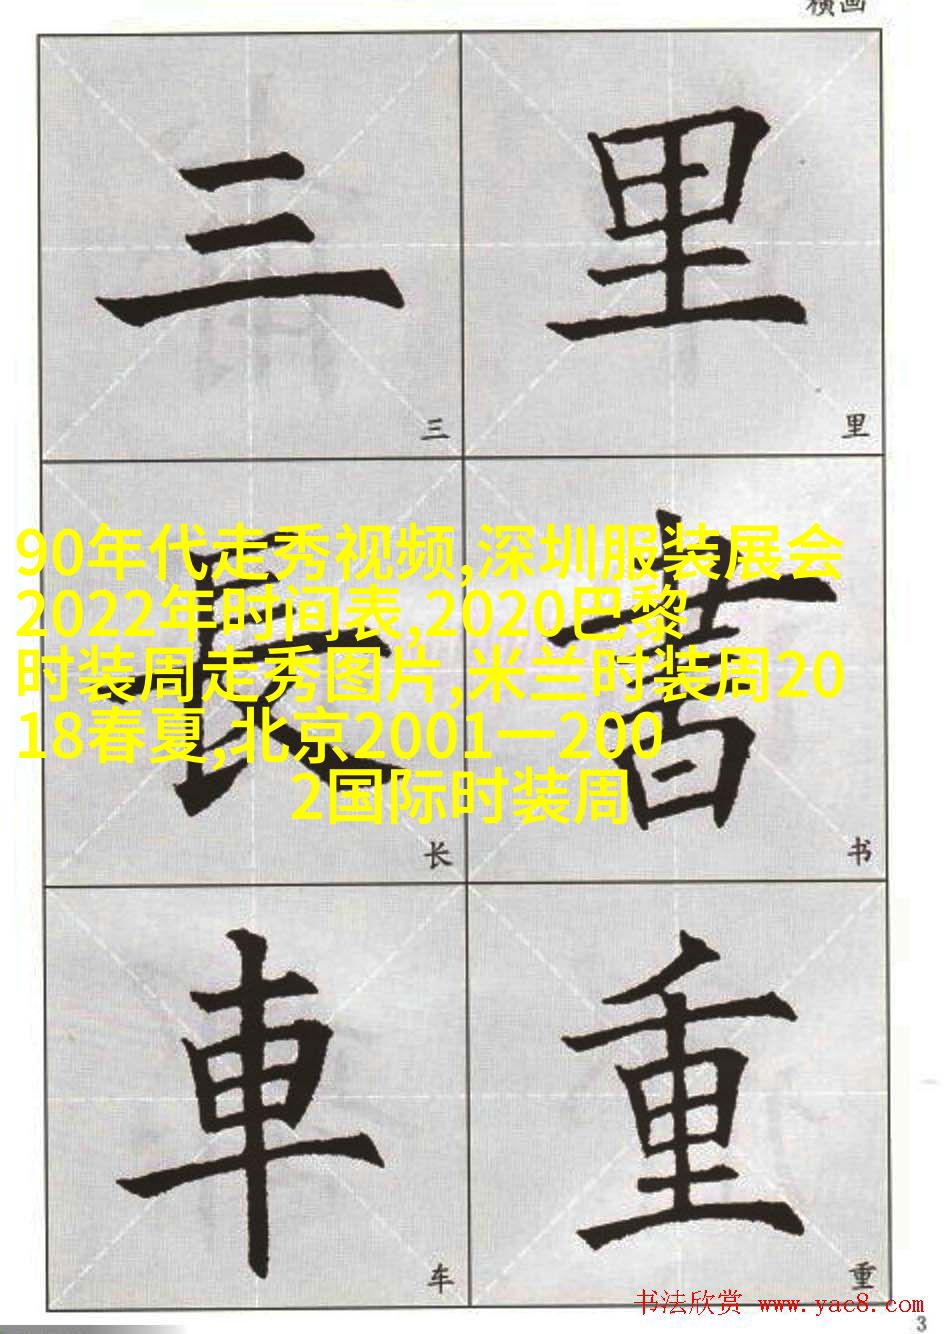 横画
三
里
三
里
90年代走秀视频,深圳服装展会
2022年时间表,2020巴黎
时装周走秀图片,米兰时装周20
18春夏,北京2001一200
2国际时装周
長
書
长
书
車
重
车
重
书法欣赏 www.yac8.com
3